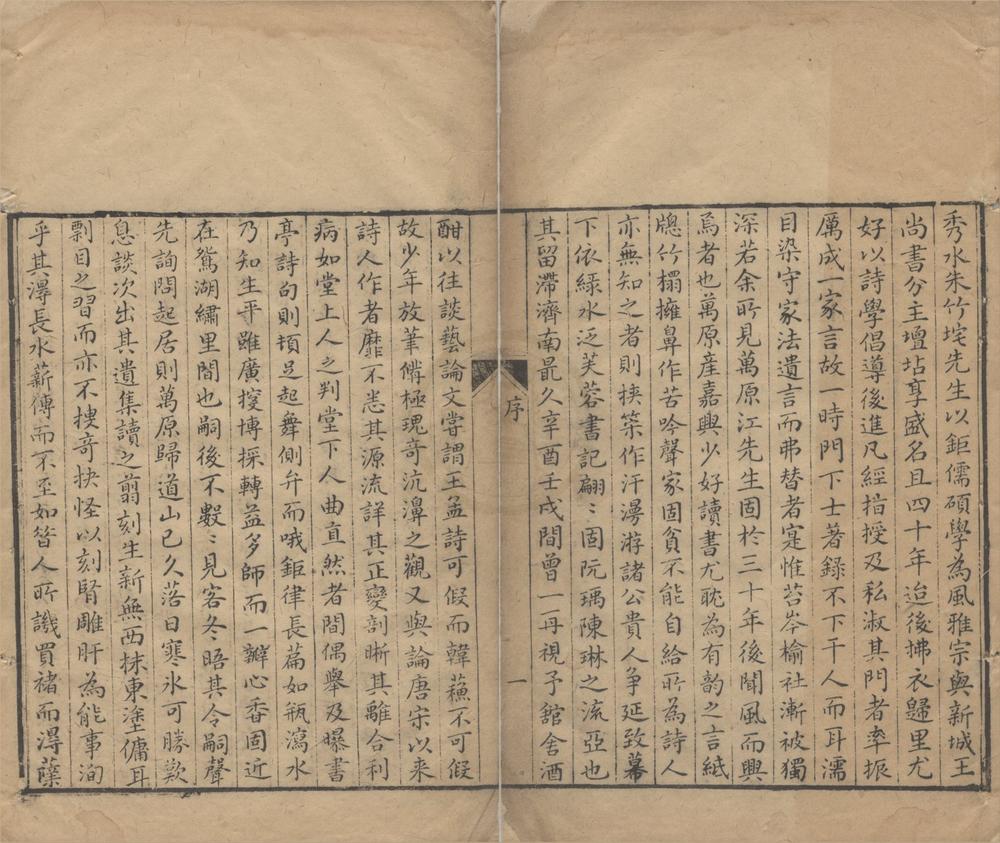 秀水朱竹垞先生以鉅儒碩學為風雅宗與新城王
尚書分主壇坫享盛名且四十年迨後拂衣歸里尤
好以詩學倡導後進凡經指授及私淑其門者率振
厲成一家言故一時門下士著錄不下千人而耳濡
目染守家法遺言而弗替者寔惟苔岑榆社漸被獨
深若余所見萬原江先生固於三十年後聞風而興
焉者也萬原産嘉興少好讀書尤耽為有韵之言紙
牕竹榻擁鼻作苦吟聲家固貧不能自給所為詩人
亦無知之者則挾筞作汗漫游諸公貴人争延致幕
下依緑水泛芙蓉書記翩〻固阮瑀陳琳之流亞也
其留滯濟南最久辛酉壬戌間曾一再視予舘舍酒
序
一
酣以往談藝論文嘗謂王孟詩可假而韓蘓不可假
故少年放筆儕極瑰奇沆瀁之觀又與論唐宋以来
詩人作者靡不悉其源流詳其正變剖晰其離合利
病如堂上人之判堂下人曲直然者間偶舉及曝書
亭詩句則頓足起舞側弁而哦鉅律長篇如瓶瀉水
乃知生平雖廣搜博採轉益多師而一瓣心香固近
在鴛湖繡里間也嗣後不數〻見客冬晤其令嗣聲
先詢問起居則萬原歸道山已久落日寒氷可勝歎
息談次出其遺集讀之翦刻生新無西抹東塗傭耳
剽目之習而亦不搜奇抉怪以刻腎雕肝為能事洵
乎其淂長水薪傳而不至如昝人所譏買禇而淂薤